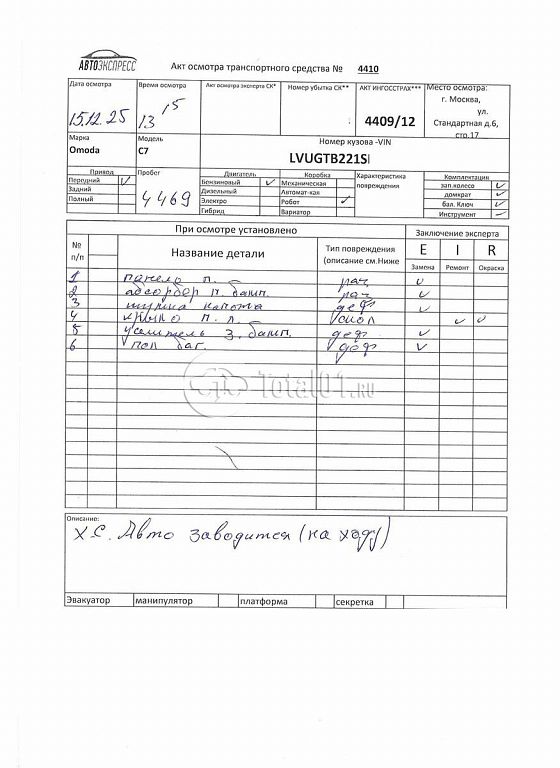 АВТОЭКСПРЕСС
Акт осмотра транспортного средства № 4410
Дата осмотра
Время осмотра
Акт осмотра эксперта СК*
Номер убытка СК**
АКТ ИНГОССТРАХ***
Место осмотра:
15.12.25
13 15
4409/12
г. Москва,
ул.
Стандартная д.6,
стр.17
Марка
Модель
Номер кузова -VIN
Omoda
C7
LVUGTB221S
Привод
Пробег
Двигатель
Коробка
Характеристика
повреждения
Комплектация
Передний
Бензиновый
Механическая
зап.колесо
Задний
Дизельный
Автомат-кая
домкрат
Полный
4469
Электро
Робот
бал. Ключ
Гибрид
Вариатор
Инструмент
При осмотре установлено
Заключение эксперта
№
п/п
Название детали
Тип повреждения
(описание см.Ниже
E I R
Замена
Ремонт
Окраска
1 панель п. рац
2 абсорбер п. бамп. рац
3 шумка капота деф
4 крыло п. л.
5 усилитель з. бамп. деф
6 пол баг. деф
Total01.RU
Описание:
Х.С. Авто заводится (на ходу)
Эвакуатор
манипулятор
платформа
секретка